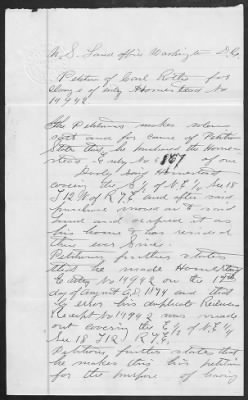 U.S. Land office Washington D.C.
Petition of Carl Roth for
Change of Entry Homestead No
14942
The Petitioner makes solemn
oath and for cause of Petition
States that he purchased the Homestead
Entry No 1867 of one
Dowdy said Homestead
covering the E/2 of N.E/4 Sec 18
T 12 N of R 7 E and after said
purchase moved on to said
land and occupied it as
his home & has resided
there ever Since.
Petitioner further states
that he made Homestead
Entry No 14942 on the
day of August A.D. 1874 and that
by error his duplicate Receivers
Receipt No 14942 was made
out covering the E/2 of N.E/4
Sec 18 T 12 R 7 E.
Petitioner further states that
he makes this his petition
for the purpose of having